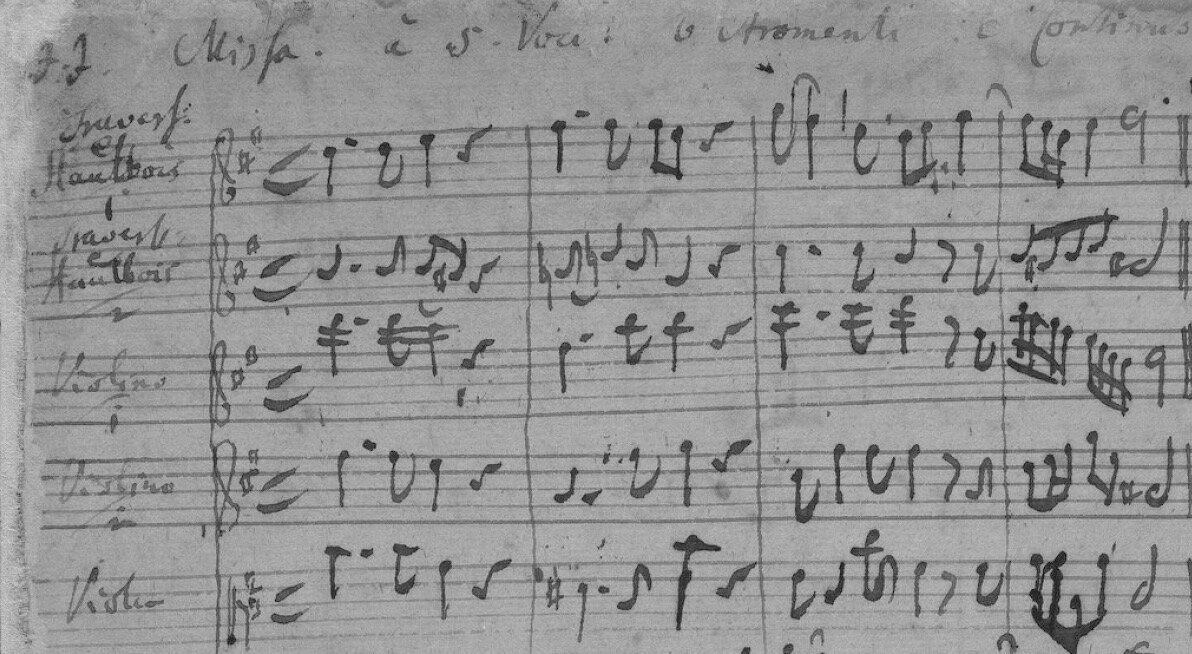 J. J. Missa. à 5. Voci. 6 stromenti e Continuo
Travers:
et
Hautbois
1
Travers:
e
Hautbois
2
Violino
1
Violino
2
Viola